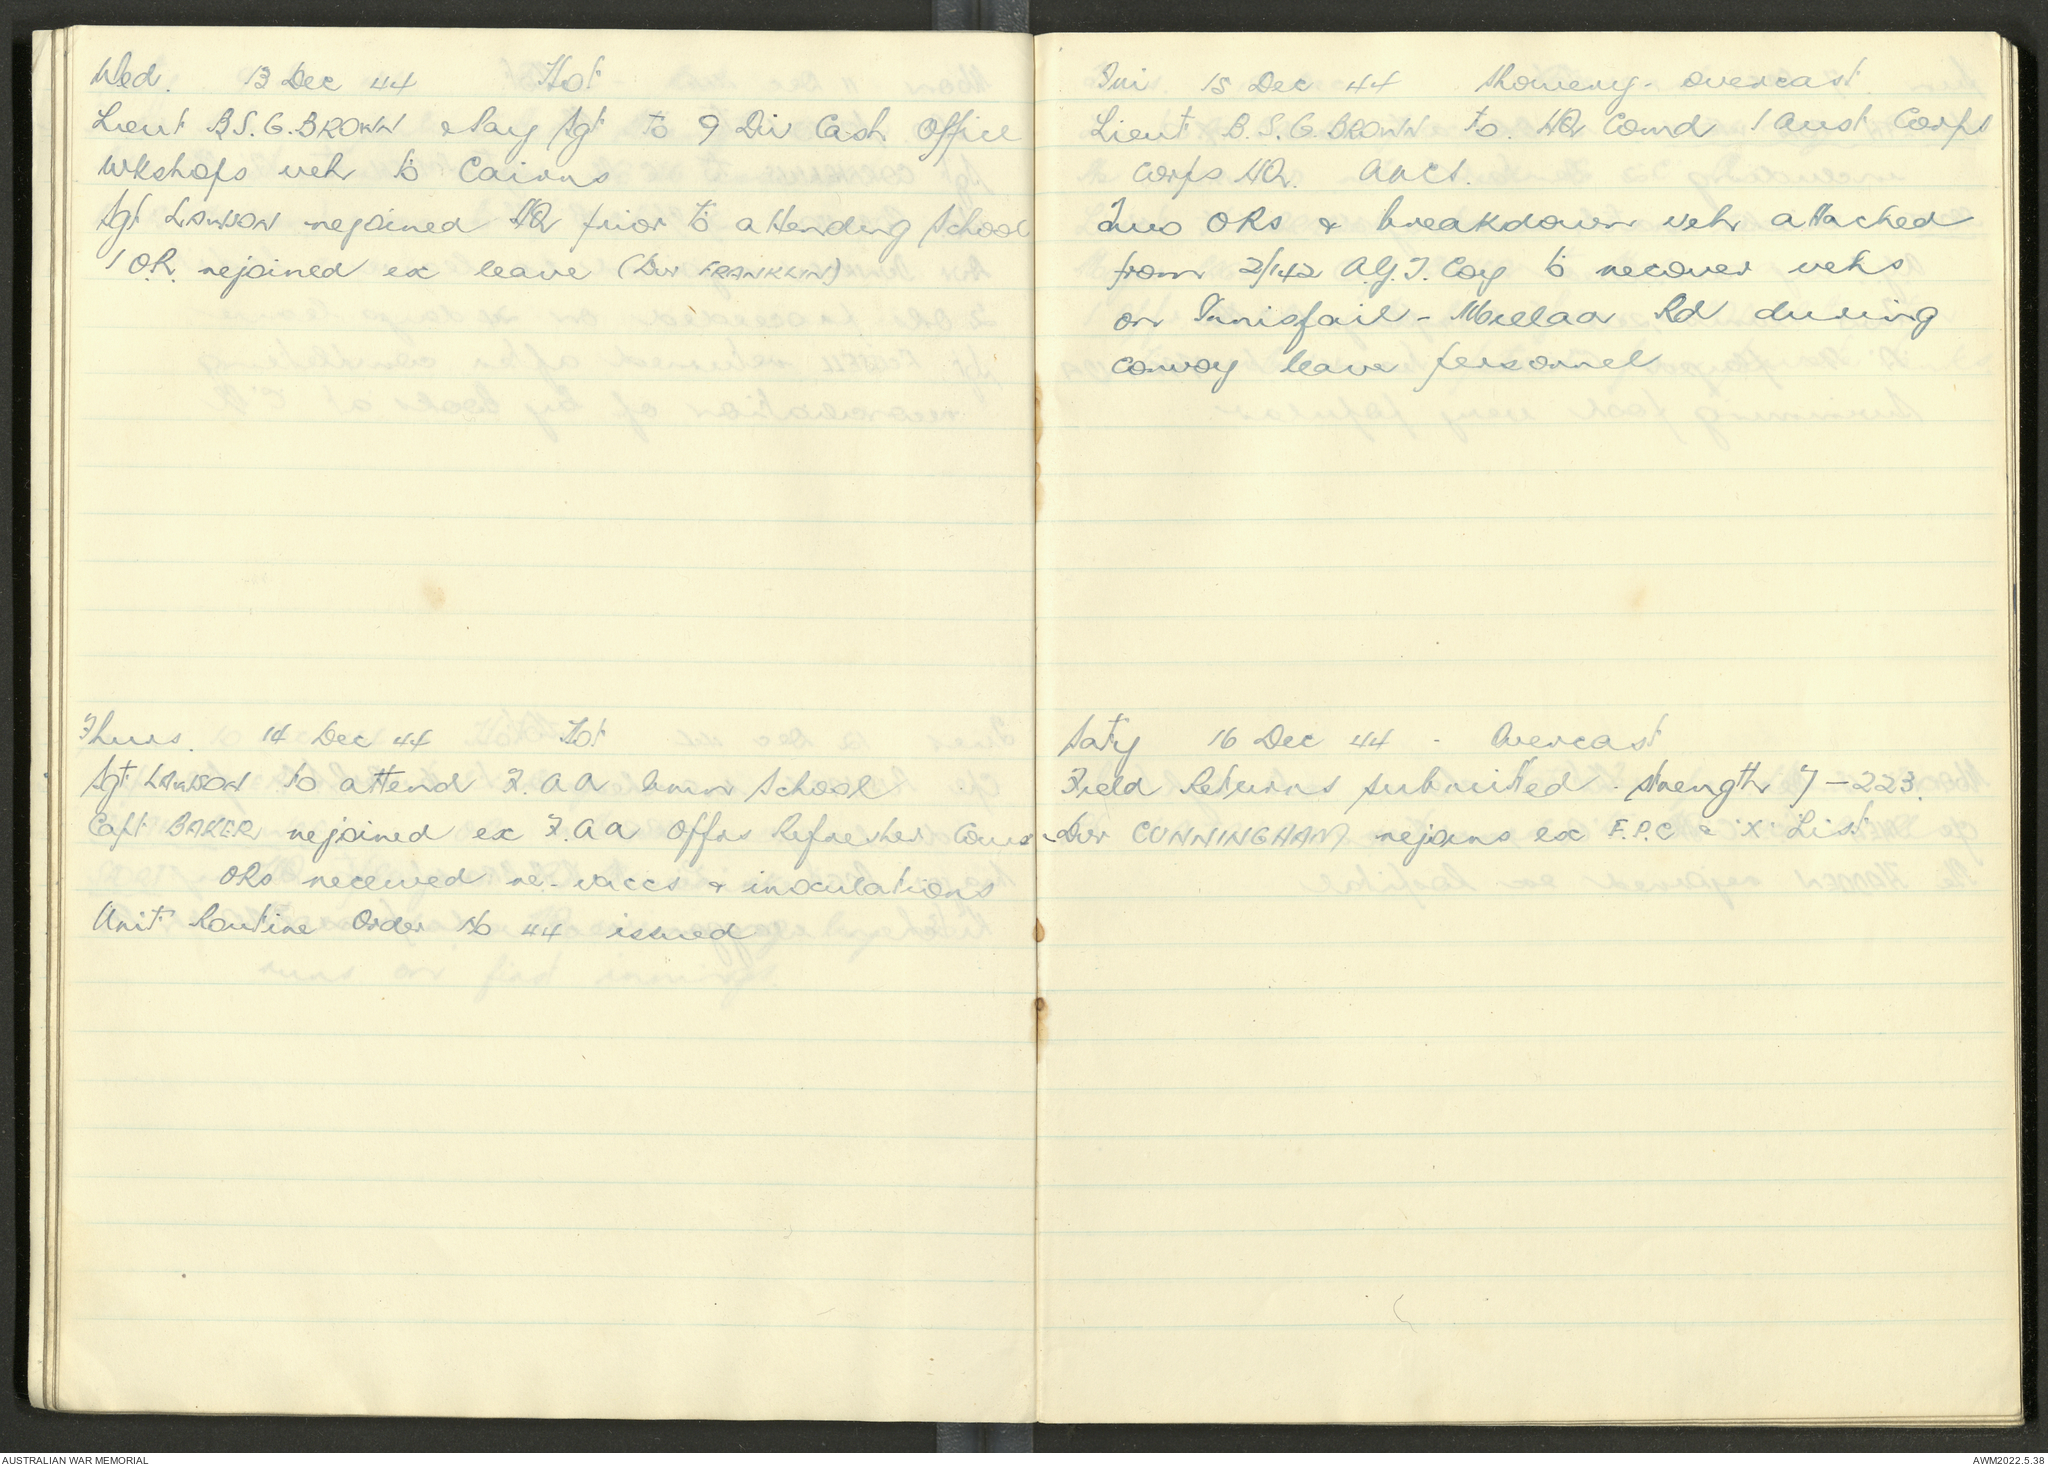 Wed. 13 Dec 44 Hot
Lieut B.S.G. BROWN & Pay Sgt to 9 Div Cash Office
Wkshops veh to Cairns
Sgt LAWSON rejoined HQ prior to attending School
1 O.R. rejoined ex leave (Dvr FRANKLIN)
Thurs. 14 Dec 44 Hot
Sgt LAWSON to attend F.A.A. Ammn School
Capt BAKER rejoined ex F.A.A Offrs Refresher Course
ORs received re-vaccs & inoculations
Unit Routine Order No 44 issued
Fri 15 Dec 44 Showery - overcast.
Lieut B.S.G. BROWN to HQ Comd 1 Aust Corps
Corps HQ. ANCS.
Two ORs & breakdown veh attached
from 2/142 A.G.T. Coy to recover vehs
on Innisfail - Millaa Rd during
convoy leave personnel
Saty 16 Dec 44 - Overcast
Field Returns submitted. Strength 7-223.
Dvr CUNNINGHAM rejoins ex F.P.C & 'X' List
AUSTRALIAN WAR MEMORIAL
AWM2022.5.38